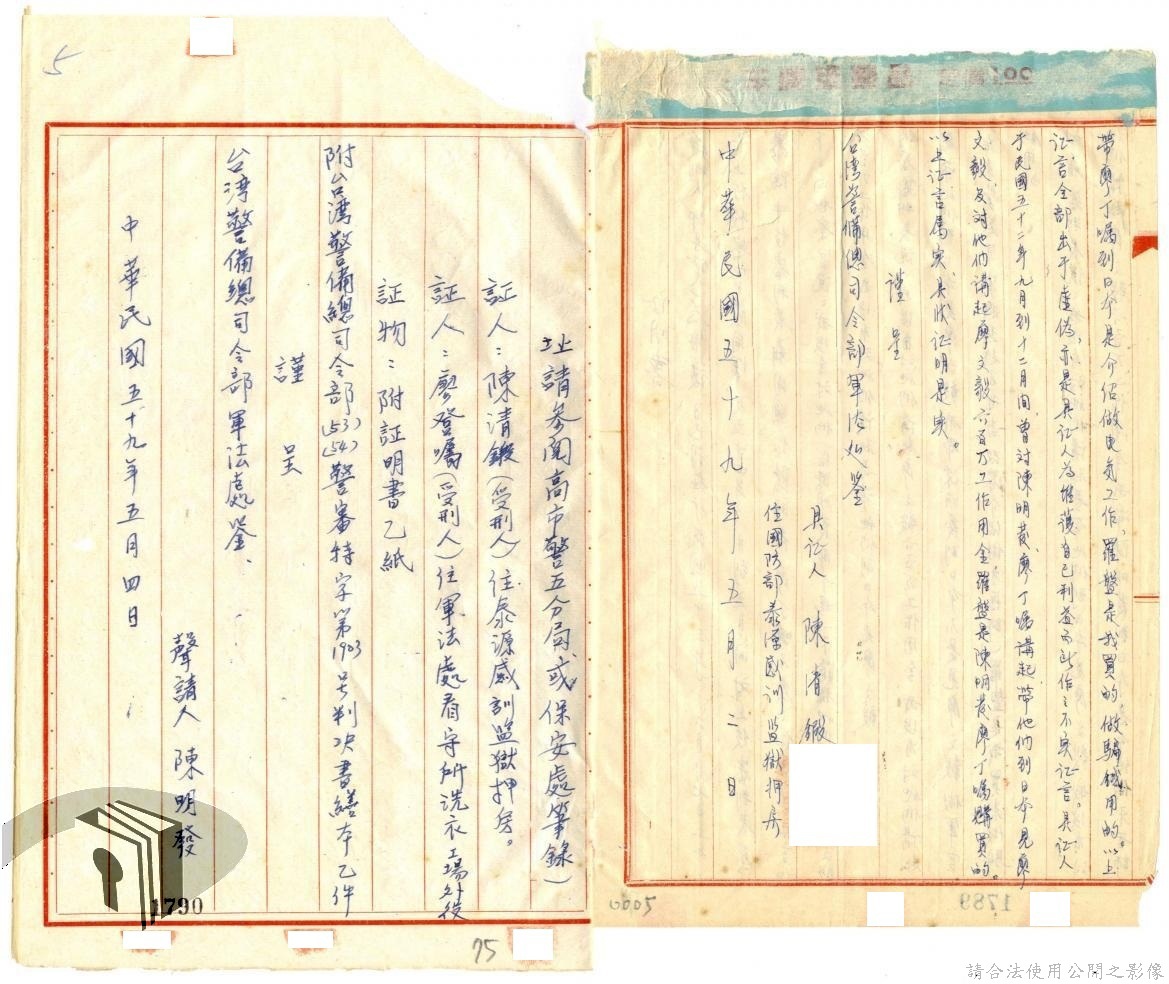 帶廖丁嘱到日本是介紹做电気工作、羅盤是我買的做騙錢用的。以上
証言全部出于虛偽、亦是具証人為维護自己利益而所作之不实証言。具証人
于民國五十二年九月到十二月间、曾对陳明發、廖丁嘱講起、帶他們到日本見廖
文毅、及对他們講起廖文毅六百万工作用金羅盤是陳明發廖丁嘱購買的。
以上証言属实、具狀証明是实。
謹呈
台湾警備總司令部軍法処鉴
具証人 陳清鍛
住國防部泰源感训监獄押房
中華民國五十九年五月二日
址請参閱高市警五分局或保安處筆錄)
証人：陳清鍛(受刑人)住泰源感訓监獄押房。
証人：廖登嘱(受刑人)住軍法處看守所洗衣工場外役
証物：附証明書乙紙
附台湾警備總司令部(53)(54)警審特字第1903号判决書繕本乙件
謹呈
台湾警備總司令部軍法處鉴、
聲請人 陳明發
中華民國五十九年五月四日
5
1790
75
0605
1789
定價100
請合法使用公開之影像